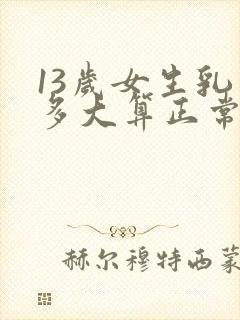 13岁女生乳
多大算正常
赫尔穆特西蒙